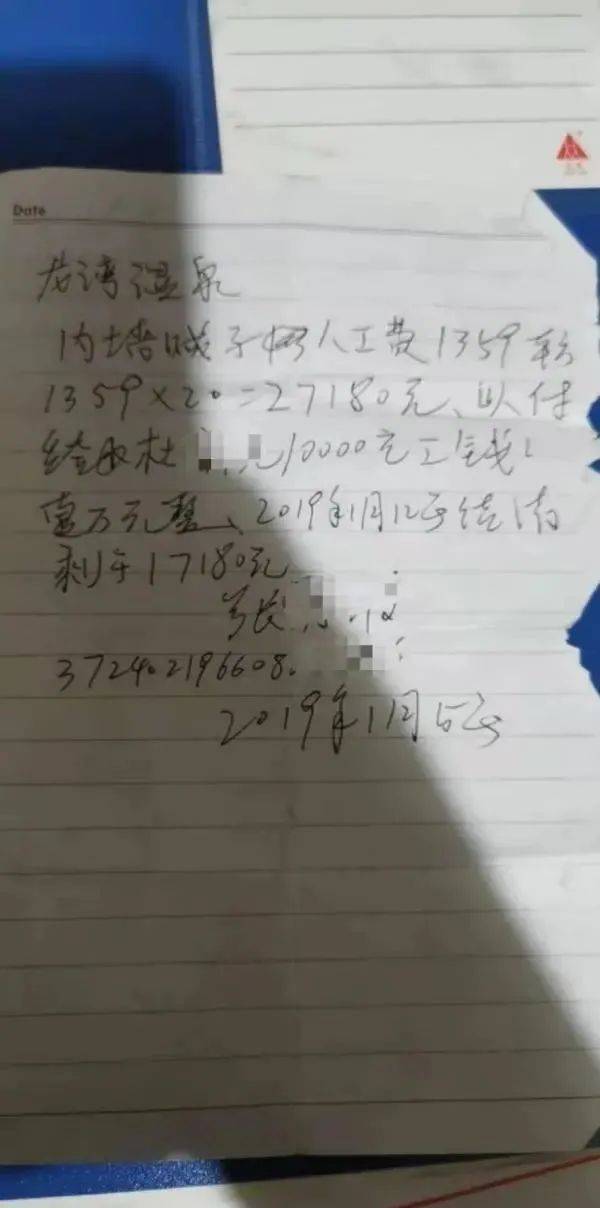 Date
龙湾温泉
内墙腻子 人工费1359
1359×20=27180元、以付
杜 元10000元工钱
壹万元整、2019年1月12号结清
剩午17180元
张
372402196608.
2019年1月5号